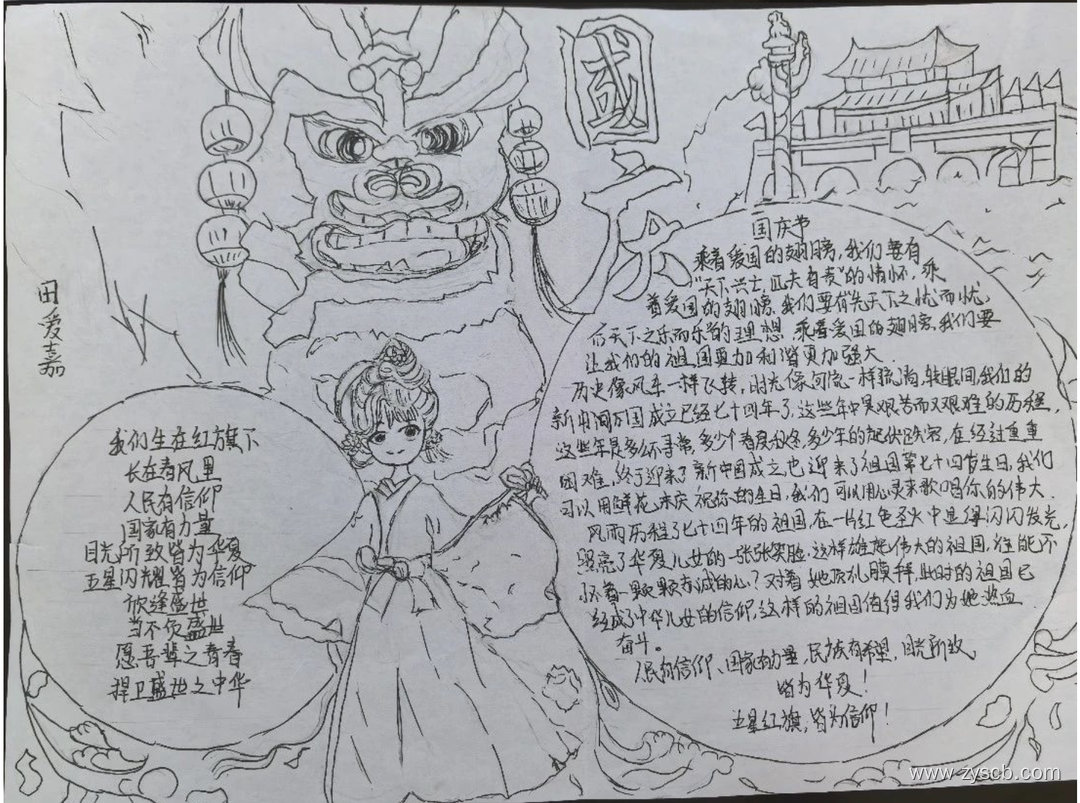 國
庆
田爱嘉
我们生在红旗下
长在春风里
人民有信仰
国家有力量
目光所致皆为华夏
五星闪耀皆为信仰
欣逢盛世
当不负盛世
愿吾辈之青春
捍卫盛世之中华
国庆节
乘着爱国的翅膀,我们要有
“天下兴亡,匹夫有责”的情怀,乘
着爱国的翅膀,我们要有“先天下之忧而忧,
后天下之乐而乐的理想,乘着爱国的翅膀,我们要
让我们的祖国更加和谐更加强大.
历史像风车一样飞转,时光像河流一样流淌,转眼间,我们的
新中国成立已经七十四年了,这些年中是艰苦而又艰难的历程,
这些年是多么不寻常,多少个春夏秋冬,多少年的起伏跌宕,在经过重重
困难,终于迎来了新中国成立,也迎来了祖国第七十四个生日,我们
可以用鲜花来庆祝你的生日,我们可以用心灵来歌唱你的伟大.
风雨历程了七十四年的祖国,在一片红色圣火中显得闪闪发光,
照亮了华夏儿女的一张张笑脸,这样雄起伟大的祖国,谁能不
怀着一颗颗赤诚的心?对着她顶礼膜拜,此时的祖国已
经成了中华儿女的信仰,这样的祖国值得我们为她热血
奋斗。
人民有信仰、国家有力量,民族有希望,目光所致,
皆为华夏!
五星红旗,皆为信仰!
www.zyscb.com